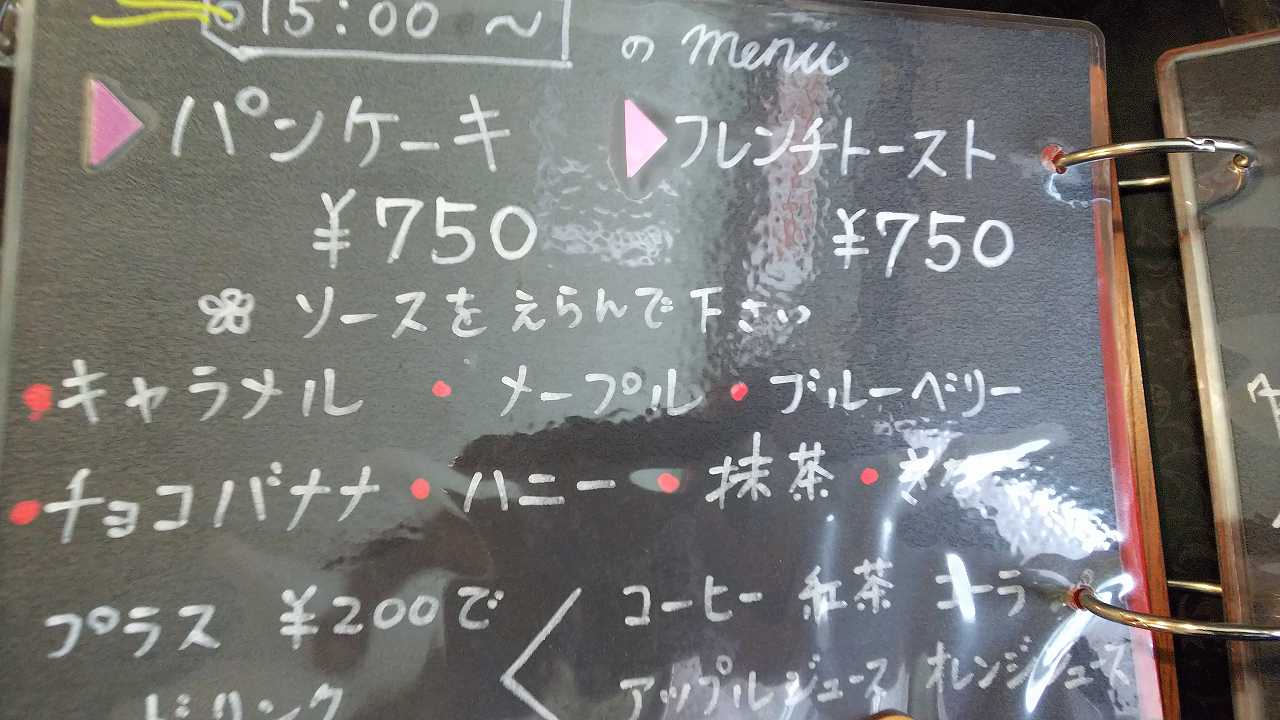 15:00 〜 の menu
パンケーキ フレンチトースト
¥750 ¥750
ソースをえらんで下さい
・キャラメル ・メープル ・ブルーベリー
・チョコバナナ ・ハニー ・抹茶 ・
プラス ¥200で コーヒー 紅茶 コーラ
ドリンク アップルジュース オレンジジュース